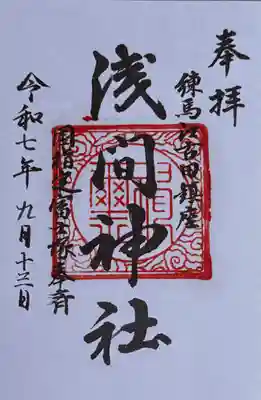 奉拝
練馬江古田鎮座
浅間神社
国指定富士塚奉斉
令和七年九月十三日